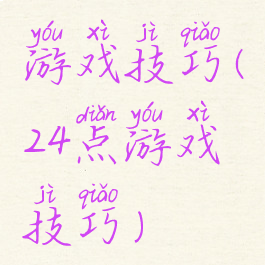 yóu xì jì qiǎo
游戏技巧(
diǎn yóu xì
24点游戏
jì qiǎo
技巧)